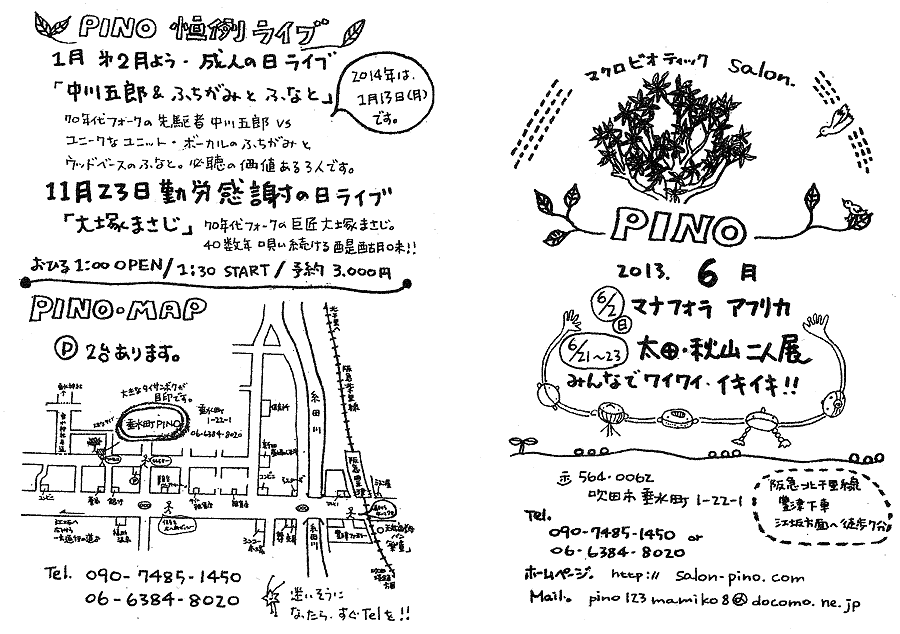 PINO 恒例ライブ
1月 第2月よう・成人の日ライブ
「中川五郎 & ふちがみとふなと」
2014年は、
1月13日(月)
です。
70年代フォークの先駆者 中川五郎 vs
ユニークなユニット・ボーカルのふちがみと
ウッドベースのふなと。必聴の価値ある3人です。
11月23日 勤労感謝の日ライブ
「大塚まさじ」70年代フォークの巨匠大塚まさじ。
40数年唄い続ける醍醐味!!
おひる1:00 OPEN/1:30 START/予約 3.000円
PINO・MAP
P 2台あります。
大きなタイサンボクが
目印です。
垂水町PINO
垂水町
1-22-1
06-6384-8020
糸田川
阪急千里線
コンビニ
コンビニ
糸田川
Tel. 090-7485-1450
06-6384-8020
迷いそうに
なったら、すぐTelを!!
マクロビオティック Salon.
PINO
2013. 6月
6/2 日 マナフォラ アフリカ
6/21~23 太田・秋山 二人展
みんなでワイワイ・イキイキ!!
〒564-0062
吹田市 垂水町 1-22-1
阪急北千里線
豊津下車
江坂方面へ徒歩7分
Tel.
090-7485-1450 or
06-6384-8020
ホームページ。http:// salon-pino.com
Mail. pino123mamiko8@docomo.ne.jp